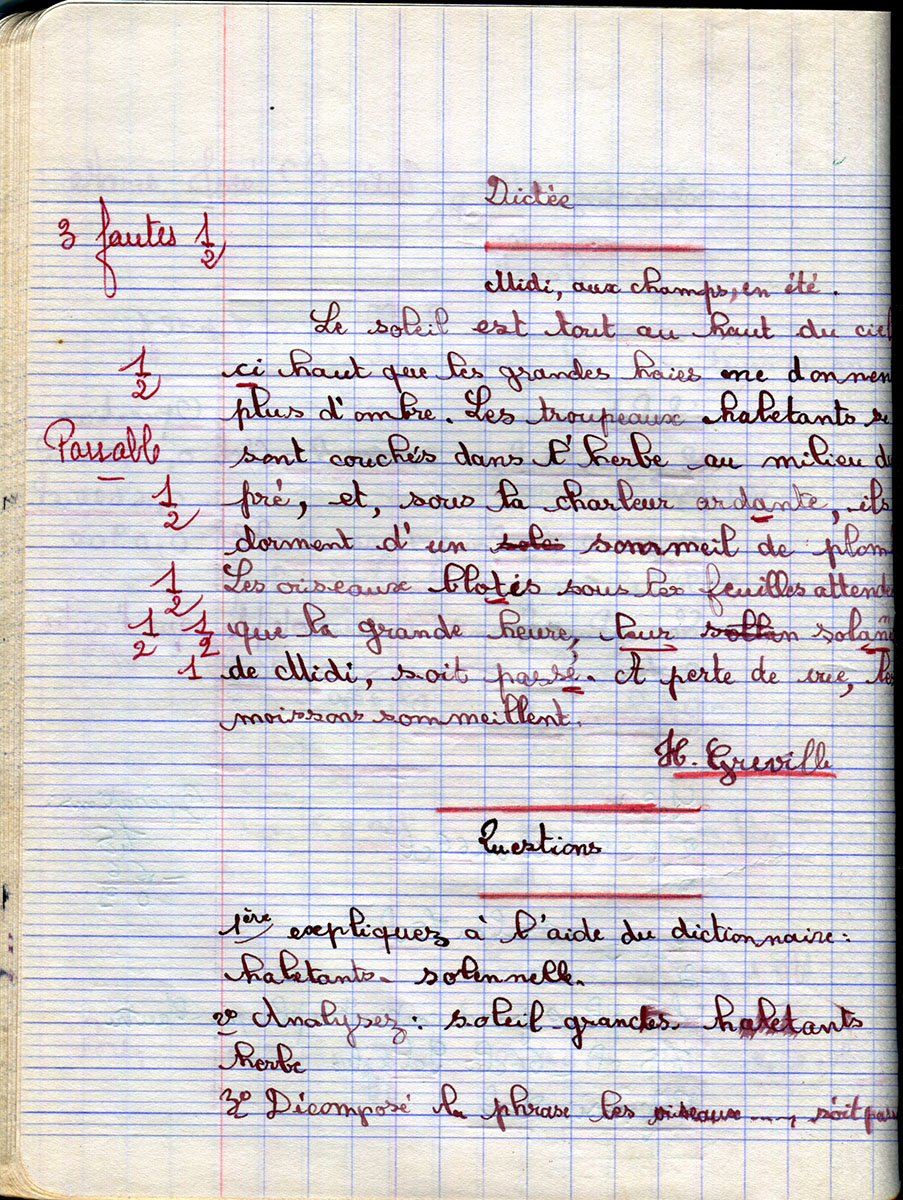 Dictée
3 fautes 1/2
Midi, aux champs, en été.
Le soleil est tout au haut du ciel
1/2 ci haut que les grandes haies ne donnen
plus d'ombre. Les troupeaux haletants se
Passable sont couchés dans l'herbe au milieu du
1/2 pré, et, sous la charleur ardante, ils
dorment d'un solei sommeil de plom
1/2 Les oiseaux blotis sous les feuilles attende
1/2 1/2 que la grande heure, leur solan
1 de Midi, soit passé. A perte de vue, les
moissons sommeillent.
H. Greville
Questions
1ère expliquez à l'aide du dictionnaire:
haletants - solennelle.
2º Analysez: soleil grandes haletants
herbe
3º Décomposé la phrase les oiseaux ...., soit pass